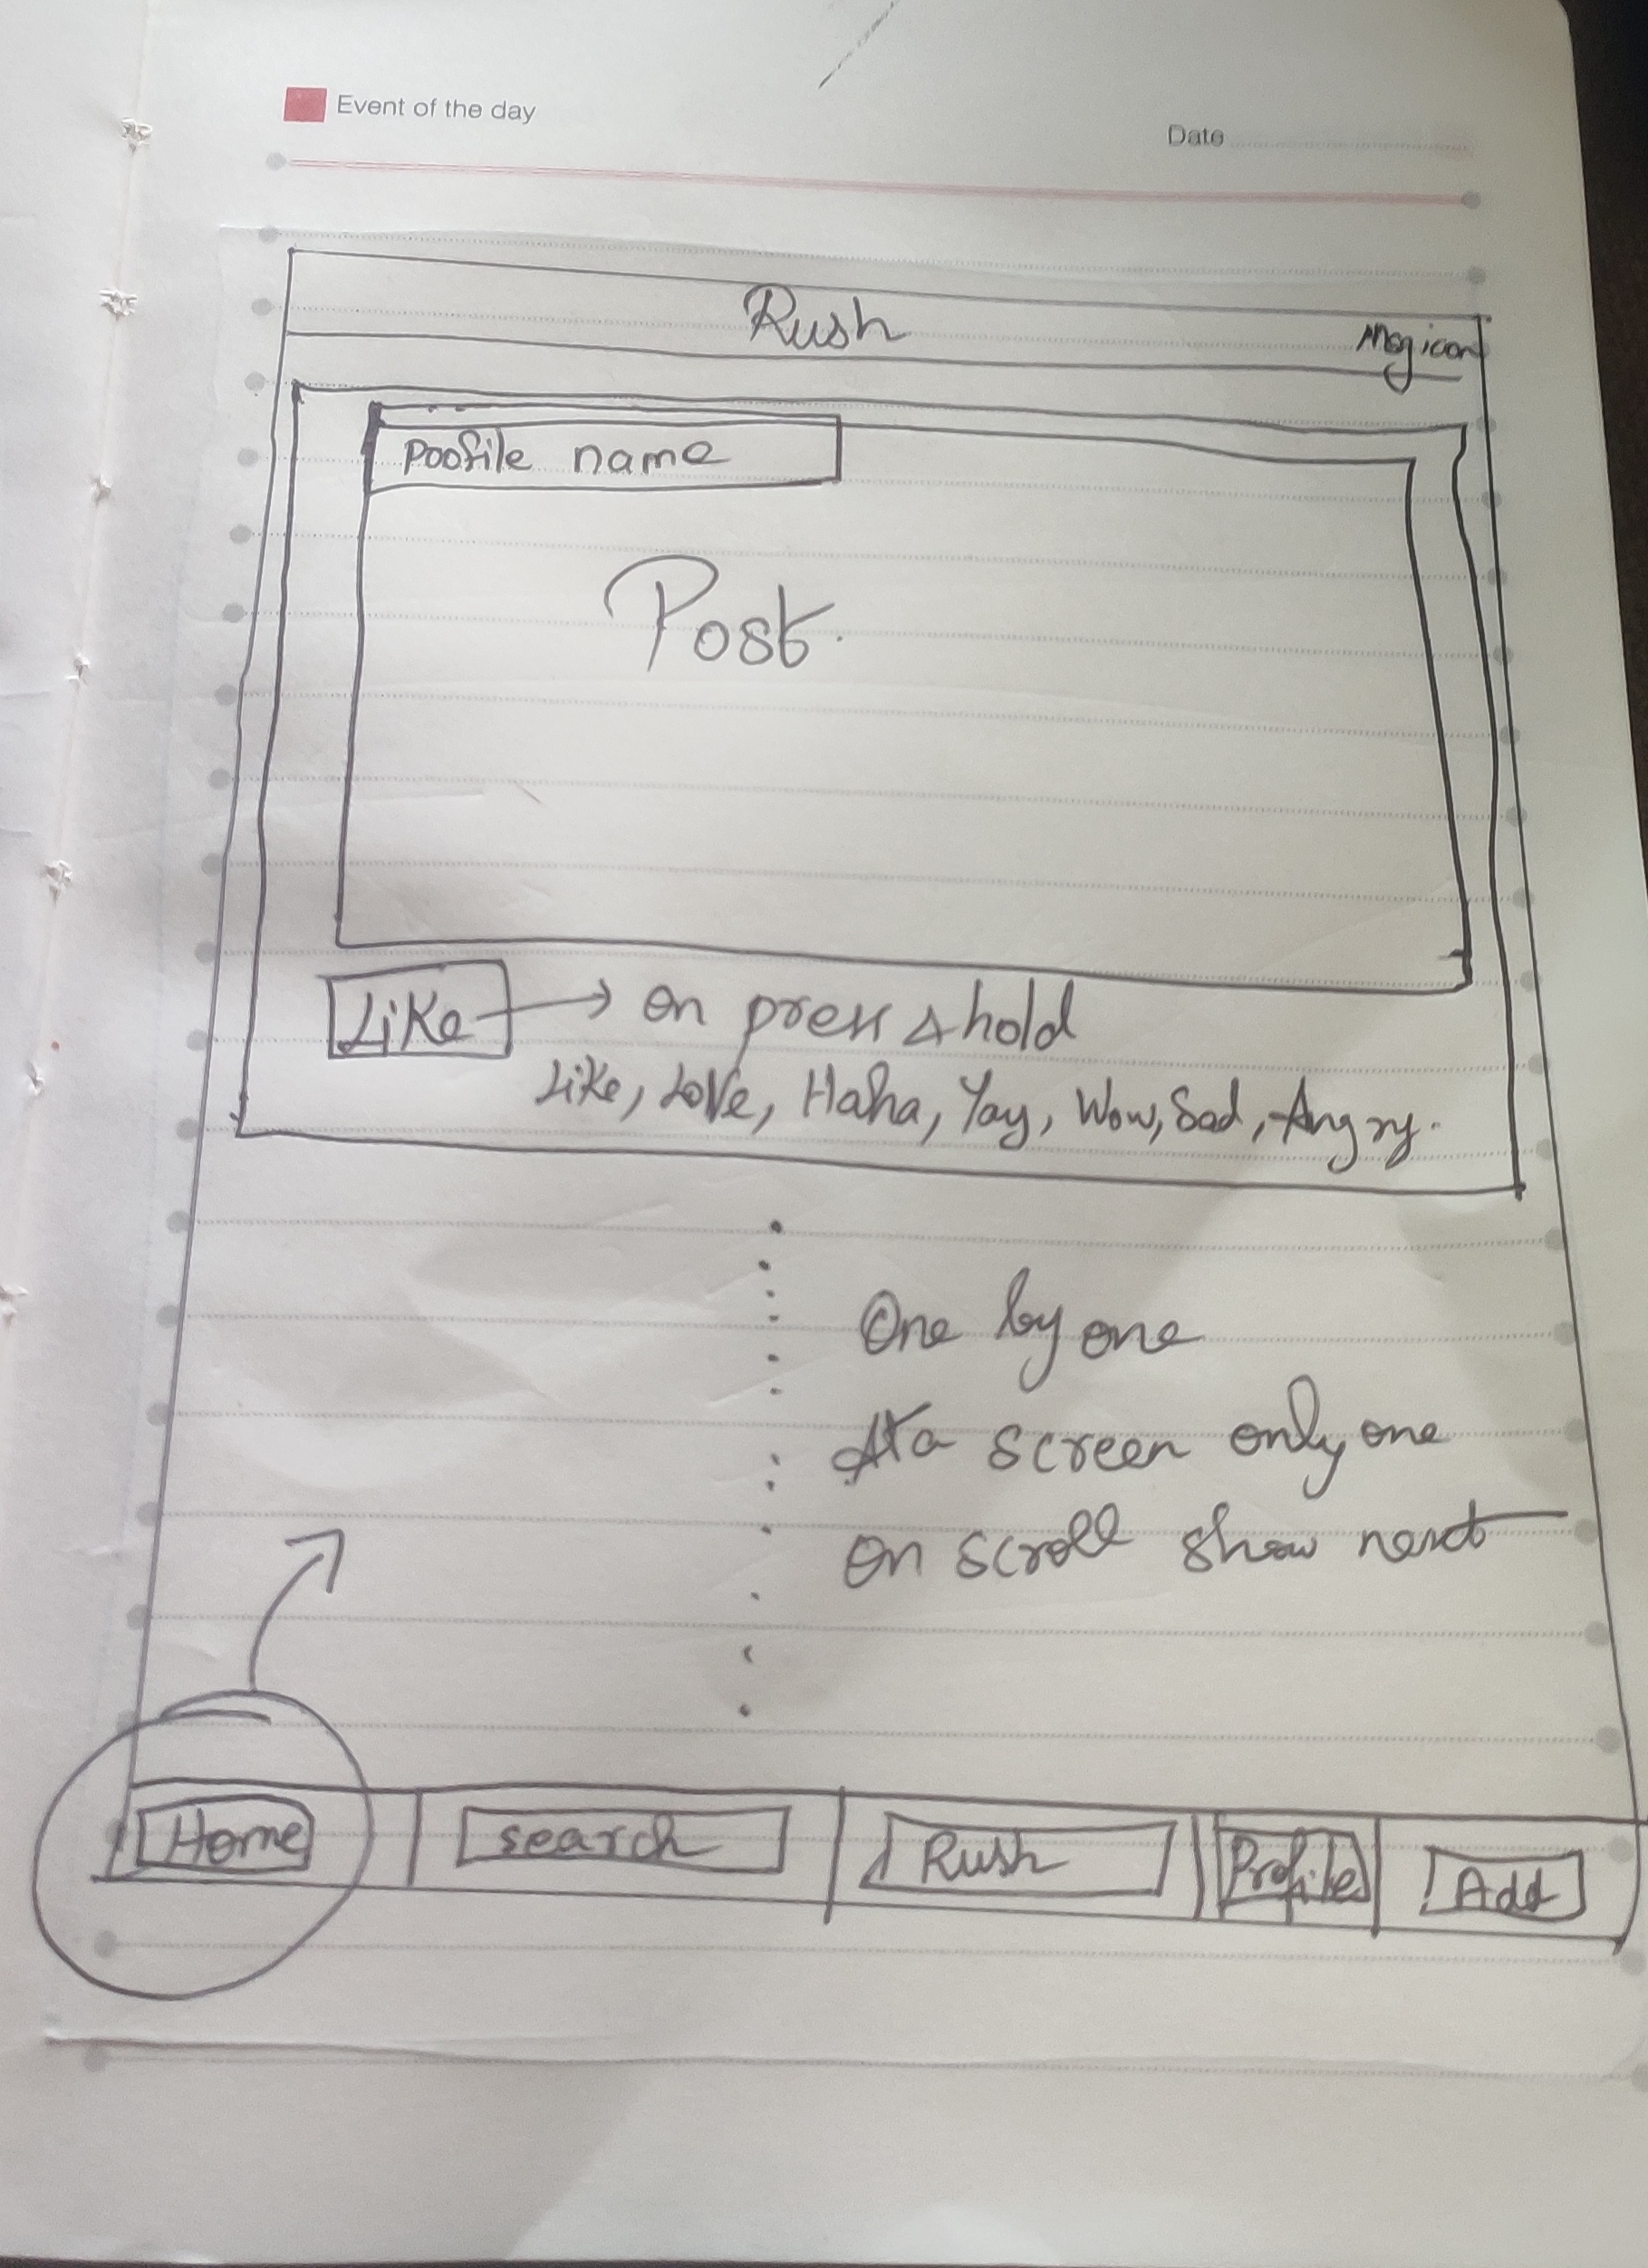 Event of the day
Date
Rush
Msg icon
Poofile name
Post.
Like → on press & hold
Like, Love, Haha, Yay, Wow, Sad, Angry.
One by one
At a screen only one
on scroll show next
Home search Rush Profile Add